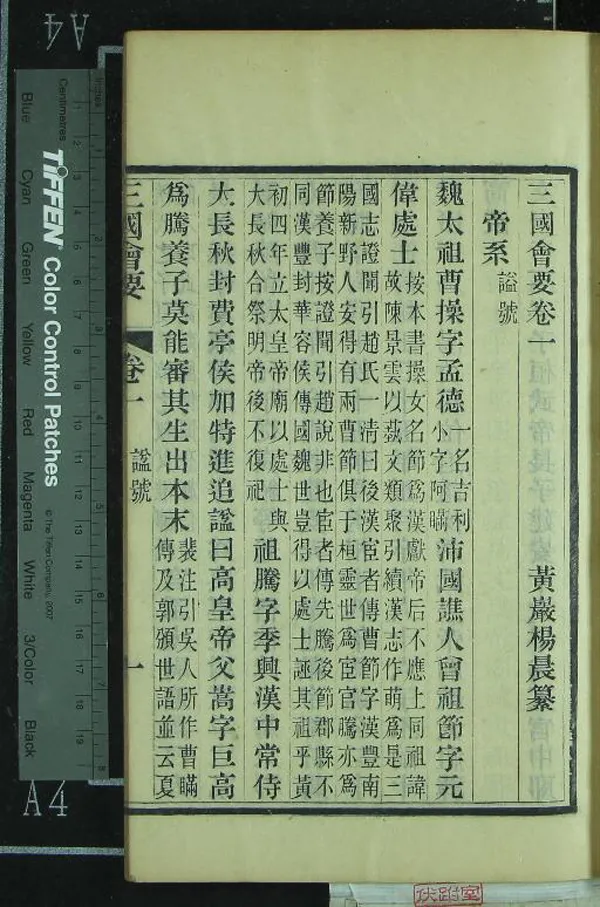 三國會要卷一
黃巖楊晨纂
帝系 諡號
魏太祖曹操字孟德 一名吉利 小字阿瞞 沛國譙人曾祖節字元
偉處士 按本書操女名節爲漢獻帝后不應上同祖諱
故陳景雲以蓺文類聚引續漢志作萌爲是三
國志證聞引趙氏一清曰後漢宦者傳曹節字漢豐南
陽新野人安得有兩曹節俱于桓靈世爲宦官騰亦爲
節養子按證聞引趙說非也宦者傳先騰後節郡縣不
同漢豐封華容侯傳國魏世豈得以處士誣其祖乎黃
初四年立太皇帝廟以處士與
大長秋合祭明帝後不復祀 祖騰字季興漢中常侍
大長秋封費亭侯加特進追諡曰高皇帝父嵩字巨高
爲騰養子莫能審其生出本末 裴注引吳人所作曹瞞
傳及郭頒世語並云夏
三國會要 卷一 諡號 一
A4
A4
Centimetres
Inches
TIFFEN® Color Control Patches
© The Tiffen Company, 2007
Blue
Cyan
Green
Yellow
Red
Magenta
White
3/Color
Black
伏跗室